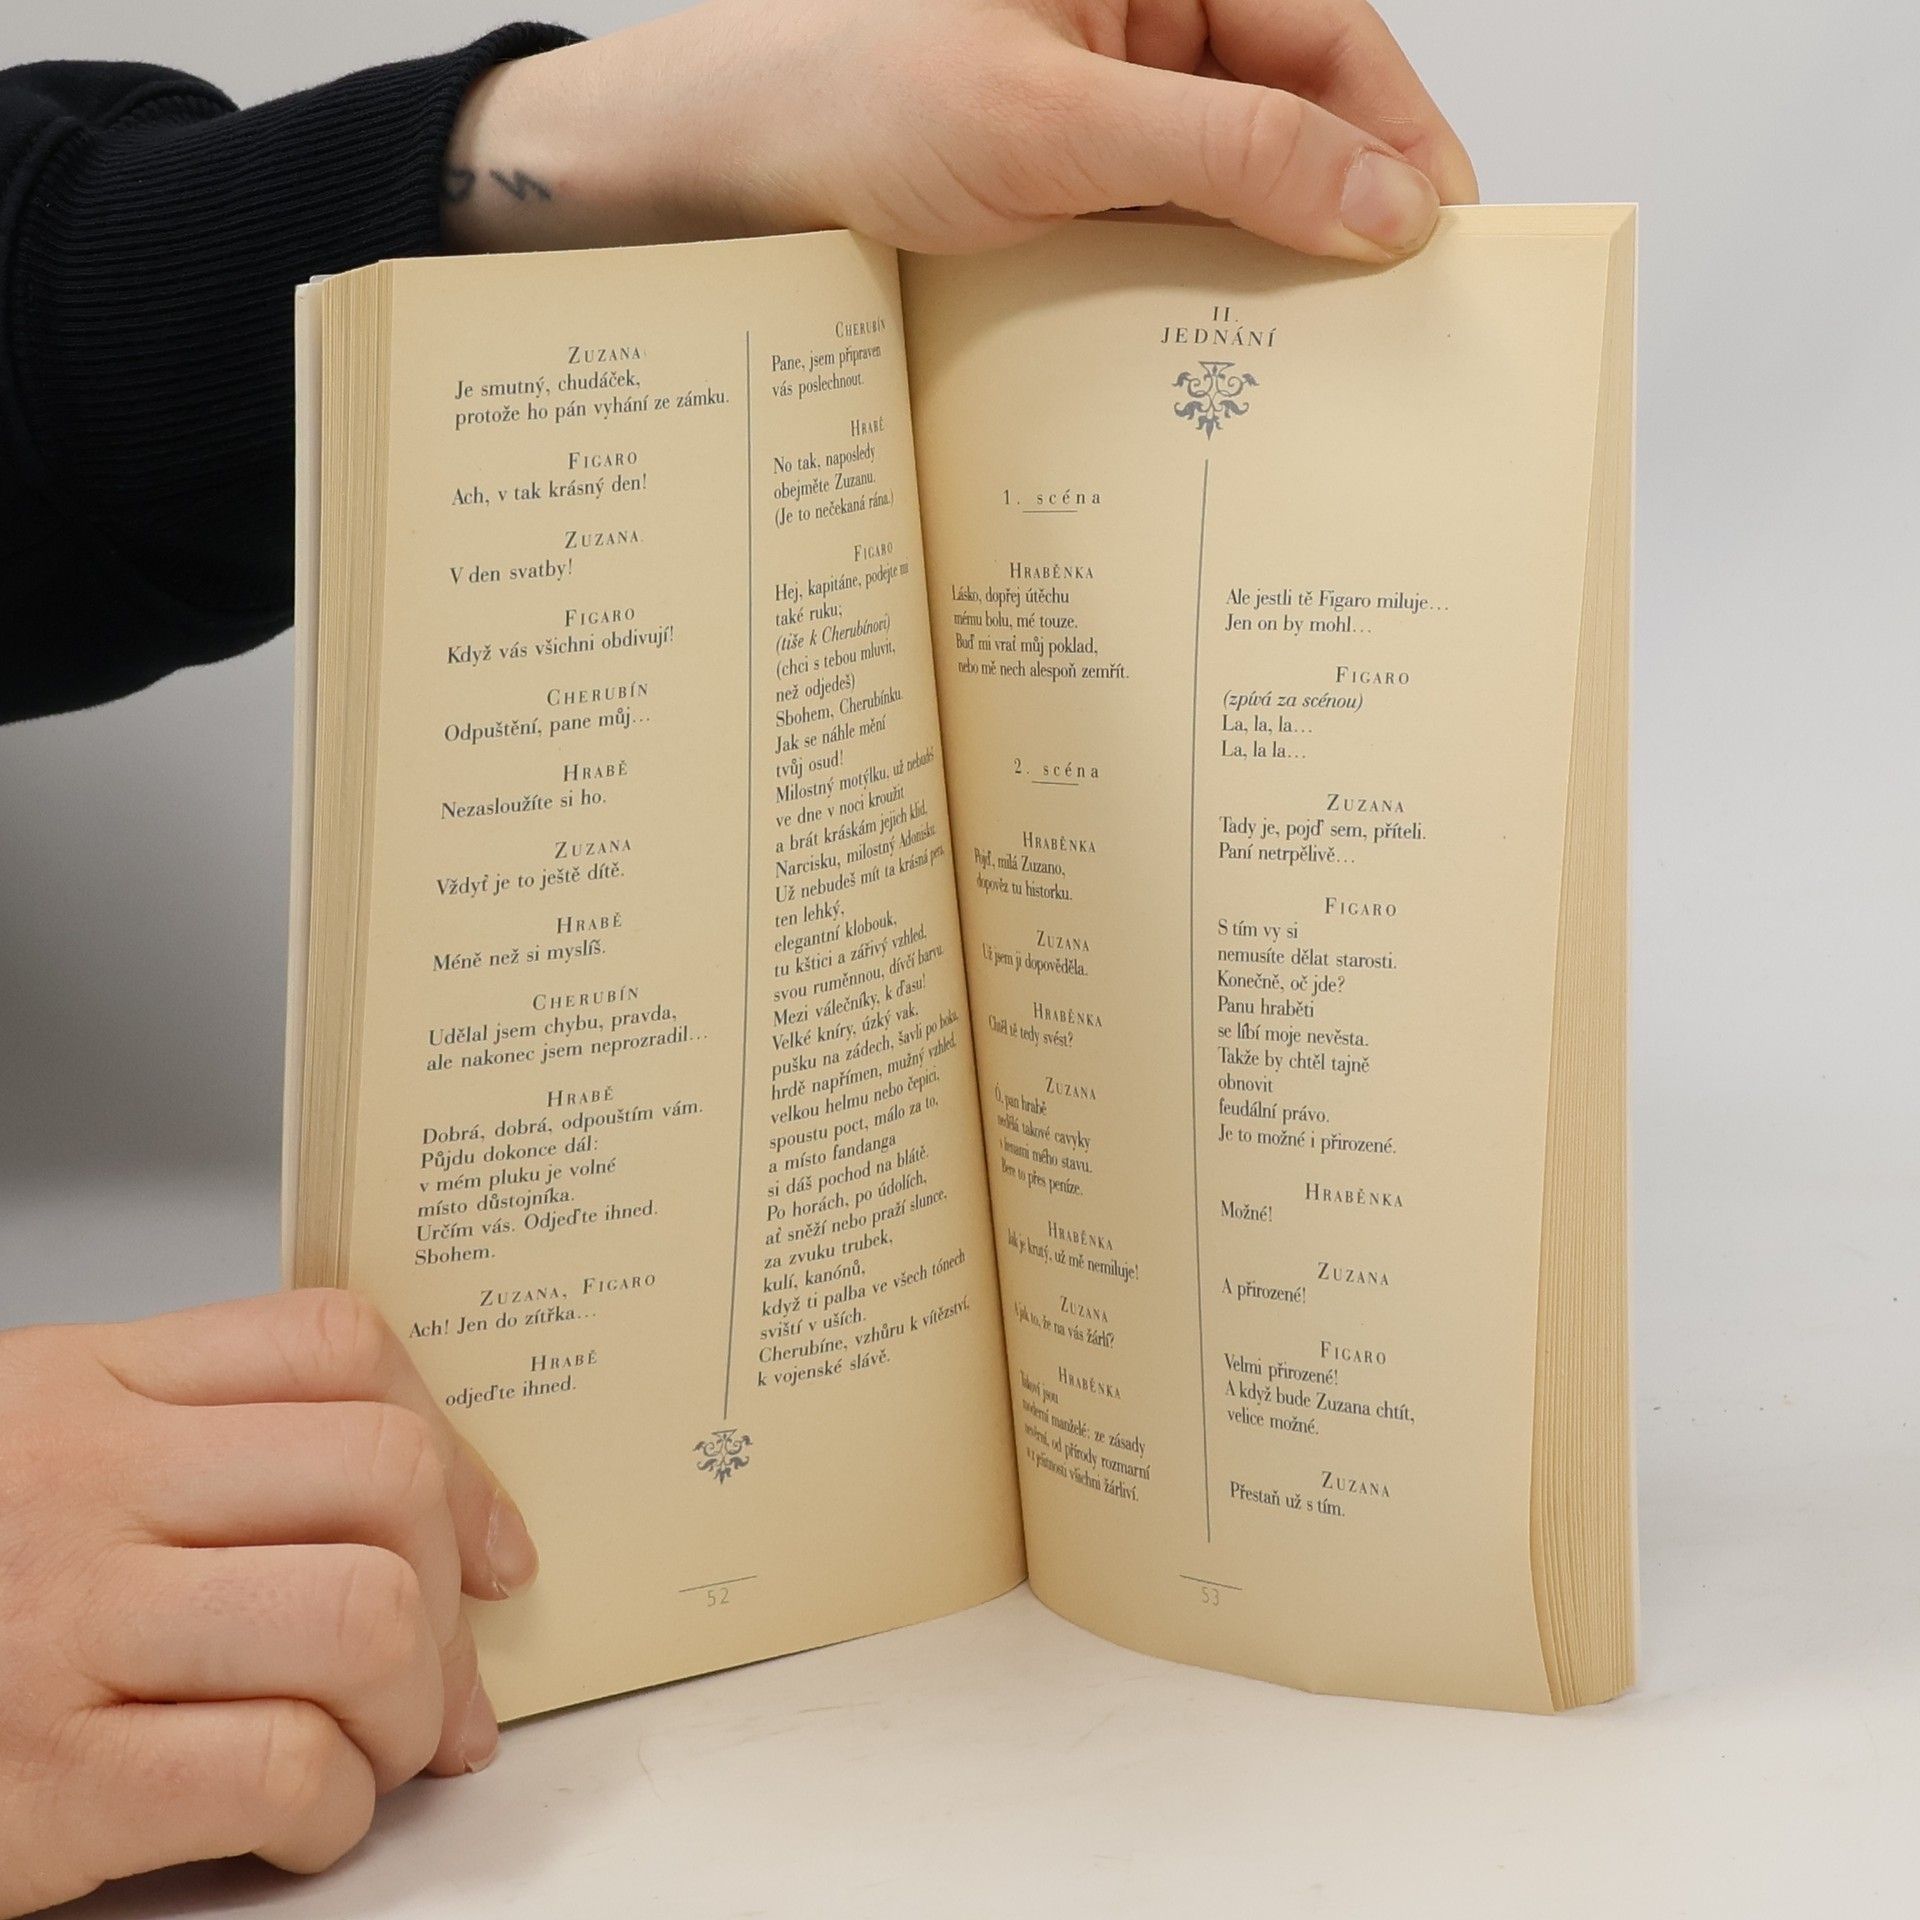 ZUZANA
Je smutný, chudáček,
protože ho pán vyhání ze zámku.
FIGARO
Ach, v tak krásný den!
ZUZANA
V den svatby!
FIGARO
Když vás všichni obdivují!
CHERUBÍN
Odpuštění, pane můj...
HRABĚ
Nezasloužíte si ho.
ZUZANA
Vždyť je to ještě dítě.
HRABĚ
Méně než si myslíš.
CHERUBÍN
Udělal jsem chybu, pravda,
ale nakonec jsem neprozradil...
HRABĚ
Dobrá, dobrá, odpouštím vám.
Půjdu dokonce dál:
v mém pluku je volné
místo důstojníka.
Určím vás. Odjeďte ihned.
Sbohem.
ZUZANA, FIGARO
Ach! Jen do zítřka...
HRABĚ
odjeďte ihned.
CHERUBÍN
Pane, jsem připraven
vás poslechnout.
HRABĚ
No tak, naposledy
obejměte Zuzanu.
(Je to nečekaná rána.)
FIGARO
Hej, kapitáne, podejte mi
také ruku;
(tiše k Cherubínovi)
(chci s tebou mluvit,
než odjedeš)
Sbohem, Cherubínku.
Jak se náhle mění
tvůj osud!
Milostný motýlku, už nebudeš
ve dne v noci kroužit
a brát kráskám jejich klid,
Narcisku, milostný Adonisku.
Už nebudeš mít ta krásná pera,
ten lehký,
elegantní klobouk,
tu kštici a zářivý vzhled,
svou ruměnnou, dívčí barvu.
Mezi válečníky, k ďasu!
Velké kníry, úzký vak,
pušku na zádech, šavli po boku,
hrdě napřímen, mužný vzhled,
velkou helmu nebo čepici,
spoustu poct, málo za to,
a místo fandanga
si dáš pochod na blátě.
Po horách, po údolích,
ať sněží nebo praží slunce,
za zvuku trubek,
kulí, kanónů,
když ti palba ve všech tónech
sviští v uších.
Cherubíne, vzhůru k vítězství,
k vojenské slávě.
52
II.
JEDNÁNÍ
1. scéna
HRABĚNKA
Lásko, dopřej útěchu
mému bolu, mé touze.
Buď mi vrať můj poklad,
nebo mě nech alespoň zemřít.
2. scéna
HRABĚNKA
Pojď, milá Zuzano,
dopověz tu historku.
ZUZANA
Už jsem ji dopověděla.
HRABĚNKA
Chtěl tě tedy svést?
ZUZANA
Ó, pan hrabě
nedělá takové cavyky
s ženami mého stavu.
Bere to přes peníze.
HRABĚNKA
Jak je krutý, už mě nemiluje!
ZUZANA
A jak to, že na vás žárlí?
HRABĚNKA
Takoví jsou
moderní manželé: ze zásady
nevěrní, od přírody rozmarní
a z ješitnosti všichni žárliví.
Ale jestli tě Figaro miluje...
Jen on by mohl...
FIGARO
(zpívá za scénou)
La, la, la...
La, la la...
ZUZANA
Tady je, pojď sem, příteli.
Paní netrpělivě...
FIGARO
S tím vy si
nemusíte dělat starosti.
Konečně, oč jde?
Panu hraběti
se líbí moje nevěsta.
Takže by chtěl tajně
obnovit
feudální právo.
Je to možné i přirozené.
HRABĚNKA
Možné!
ZUZANA
A přirozené!
FIGARO
Velmi přirozené!
A když bude Zuzana chtít,
velice možné.
ZUZANA
Přestaň už s tím.
53